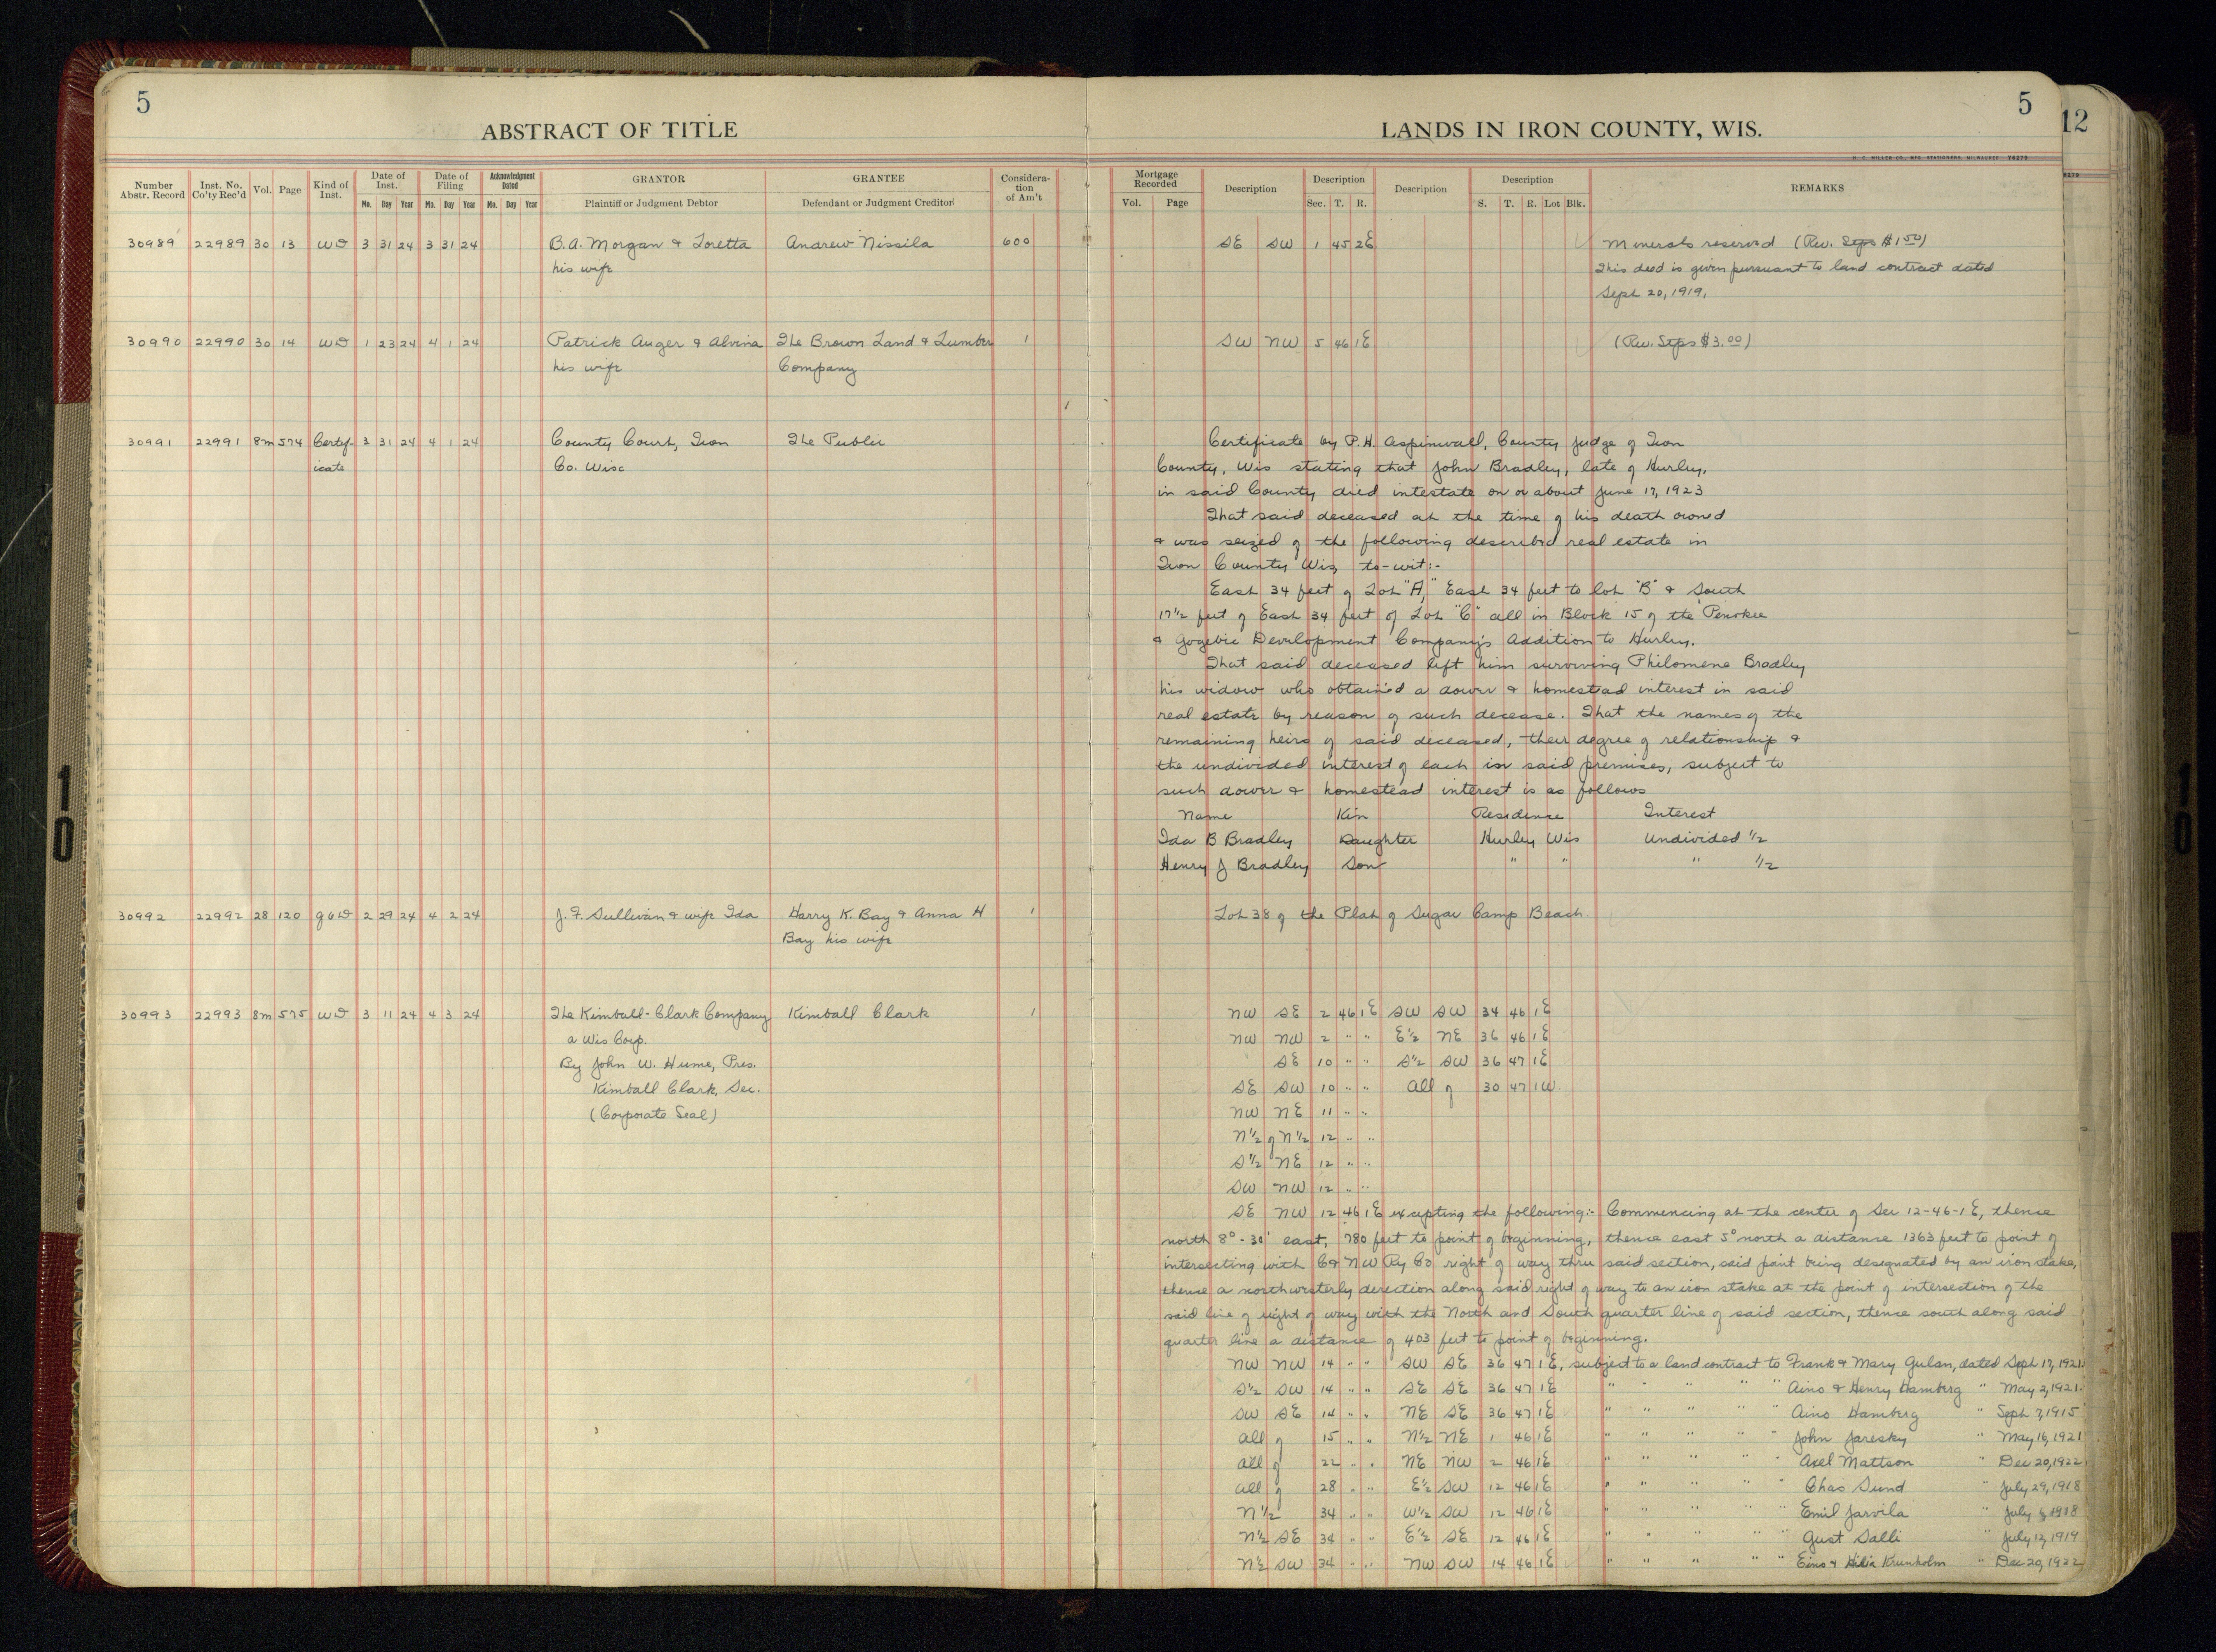 5
ABSTRACT OF TITLE
LANDS IN IRON COUNTY, WIS.
5
12
Number Abstr. Record | Inst. No. Co'ty Rec'd | Vol. | Page | Kind of Inst. | Date of Inst. Mo. Day Year | Date of Filing Mo. Day Year | Acknowledgment Dated Mo. Day Year | GRANTOR Plaintiff or Judgment Debtor | GRANTEE Defendant or Judgment Creditor | Consideration of Am't | Mortgage Recorded Vol. Page | Description | Description Sec. T. R. | Description | Description S. T. R. Lot Blk. | REMARKS
30989 22989 30 13 WD 3 31 24 3 31 24 B.A. Morgan & Loretta Andrew Nissila 600 SE SW 1 45 2E Minerals reserved (Rev. Stps $1.50)
his wife This deed is given pursuant to land contract dated
Sept 20, 1919,
30990 22990 30 14 WD 1 23 24 4 1 24 Patrick Auger & Alvina The Brown Land & Lumber 1 SW NW 5 46 1E (Rev. Stps $3.00)
his wife Company
30991 22991 8m 574 Certif- 3 31 24 4 1 24 County Court, Iron The Public Certificate by P.H. Aspinwall, County Judge of Iron
icate Co. Wisc County, Wis stating that John Bradley, late of Hurley,
in said County died intestate on or about June 17, 1923
That said deceased at the time of his death owned
& was seized of the following described real estate in
Iron County Wis, to-wit:-
East 34 feet of Lot "A," East 34 feet to lot "B" & South
17 1/2 feet of East 34 feet of Lot "C" all in Block 15 of the Penokee
& Gogebic Development Company's Addition to Hurley.
That said deceased left him surviving Philomene Bradley
his widow who obtained a dower & homestead interest in said
real estate by reason of such decease. That the names of the
remaining heirs of said deceased, their degree of relationship &
the undivided interest of each in said premises, subject to
such dower & homestead interest is as follows
Name Kin Residence Interest
Ida B Bradley Daughter Hurley Wis Undivided 1/2
Henry J Bradley Son " " " 1/2
30992 22992 28 120 QCD 2 29 24 4 2 24 J. F. Sullivan & wife Ida Harry K. Bay & Anna H 1 Lot 38 of the Plat of Sugar Camp Beach
Bay his wife
30993 22993 8m 575 WD 3 11 24 4 3 24 The Kimball-Clark Company Kimball Clark 1 NW SE 2 46 1E SW SW 34 46 1E
a Wis Corp. NW NW 2 " " E½ NE 36 46 1E
By John W. Hume, Pres. SE 10 " " S½ SW 36 47 1E
Kimball Clark, Sec. SE SW 10 " " All of 30 47 1W
(Corporate Seal) NW NE 11 " "
N½ of N½ 12 " "
S½ NE 12 " "
SW NW 12 " "
SE NW 12 46 1E excepting the following:- Commencing at the center of Sec 12-46-1E, thence
north 8°-30' east, 780 feet to point of beginning, thence east 5° north a distance 1363 feet to point of
intersecting with C & N W Ry Co right of way thru said section, said point being designated by an iron stake,
thence a northwesterly direction along said right of way to an iron stake at the point of intersection of the
said line of right of way with the North and South quarter line of said section, thence south along said
quarter line a distance of 403 feet to point of beginning.
NW NW 14 " " SW SE 36 47 1E, subject to a land contract to Frank & Mary Gulan, dated Sept 17, 1921.
S½ SW 14 " " SE SE 36 47 1E " " " " " Aino & Henry Hamberg " May 2, 1921.
SW SE 14 " " NE SE 36 47 1E " " " " " Aino Hamberg " Sept 7, 1915
All of 15 " " N½ NE 1 46 1E " " " " " John Jaresky " May 16, 1921
All of 22 " " NE NW 2 46 1E " " " " " Axel Mattson " Dec 20, 1922
All of 28 " " E½ SW 12 46 1E " " " " " Chas Sund " July 29, 1918
N½ 34 " " W½ SW 12 46 1E " " " " " Emil Jarvila " July 1918
N½ SE 34 " " E½ SE 12 46 1E " " " " " Gust Salli " July 12, 1919
N½ SW 34 " " NW SW 14 46 1E " " " " " Eino & Hilia Krunholm " Dec 20, 1922
10
10